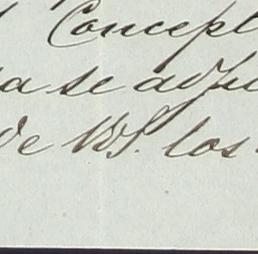 Concept
a se adju
de VS. los